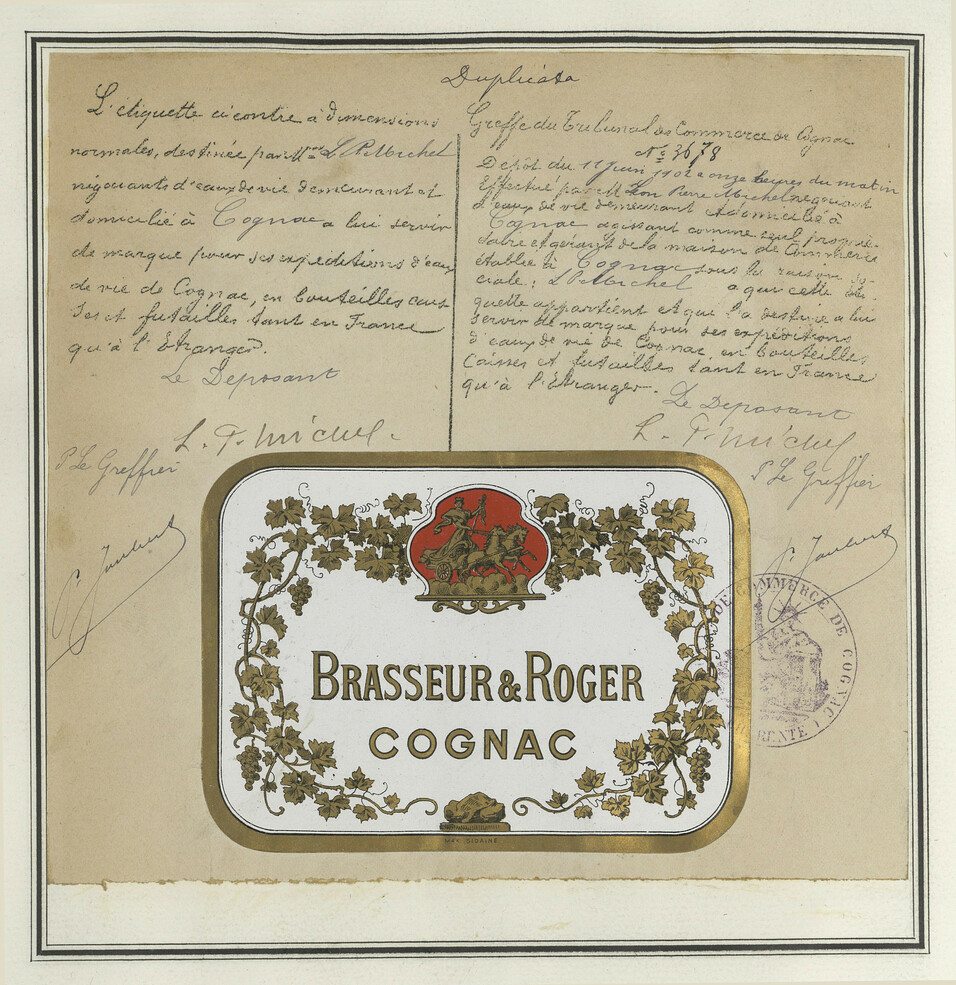 Duplicata
L'étiquette ci contre à dimensions
normales, destinée par Mr L P Michel
négociants d'eaux de vie demeurant et
domicilié à Cognac a lui servir
de marque pour ses expéditions d'eaux
de vie de Cognac, en bouteilles cais
ses et futailles tant en France
qu'à l'Etranger.
Le Deposant
L. P. Michel.
P Le Greffier
P. Jaubert
Greffe du Tribunal de Commerce de Cognac
No 3678
Depôt du 11 Juin 1902 a onze heures du matin
Effectué par M Léon Pierre Michel négociant
d'eaux de vie demeurant et domicilié à
Cognac agissant comme seul proprié-
taire et gérant de la maison de Commerce
établie à Cognac sous la raison so-
ciale: L P Michel a qui cette éti-
quette appartient et qui l'a destine a lui
servir de marque pour ses expéditions
d'eaux de vie de Cognac, en bouteilles
Caisses et futailles tant en France
qu'à l'Etranger.
Le Deposant
L. P. Michel
P Le Greffier
P. Jaubert
BRASSEUR & ROGER
COGNAC
DE COMMERCE DE COGNAC
RENTE